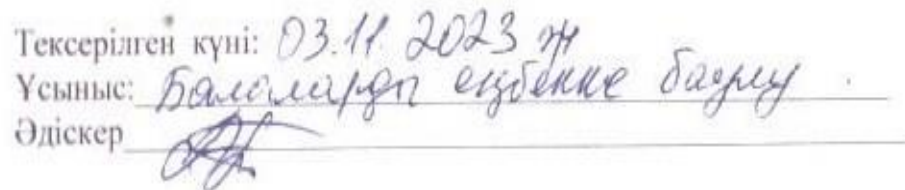 Тексерілген күні: 03.11.2023 ж
Ұсыныс: Балаларды еңбекке баулу.
Әдіскер